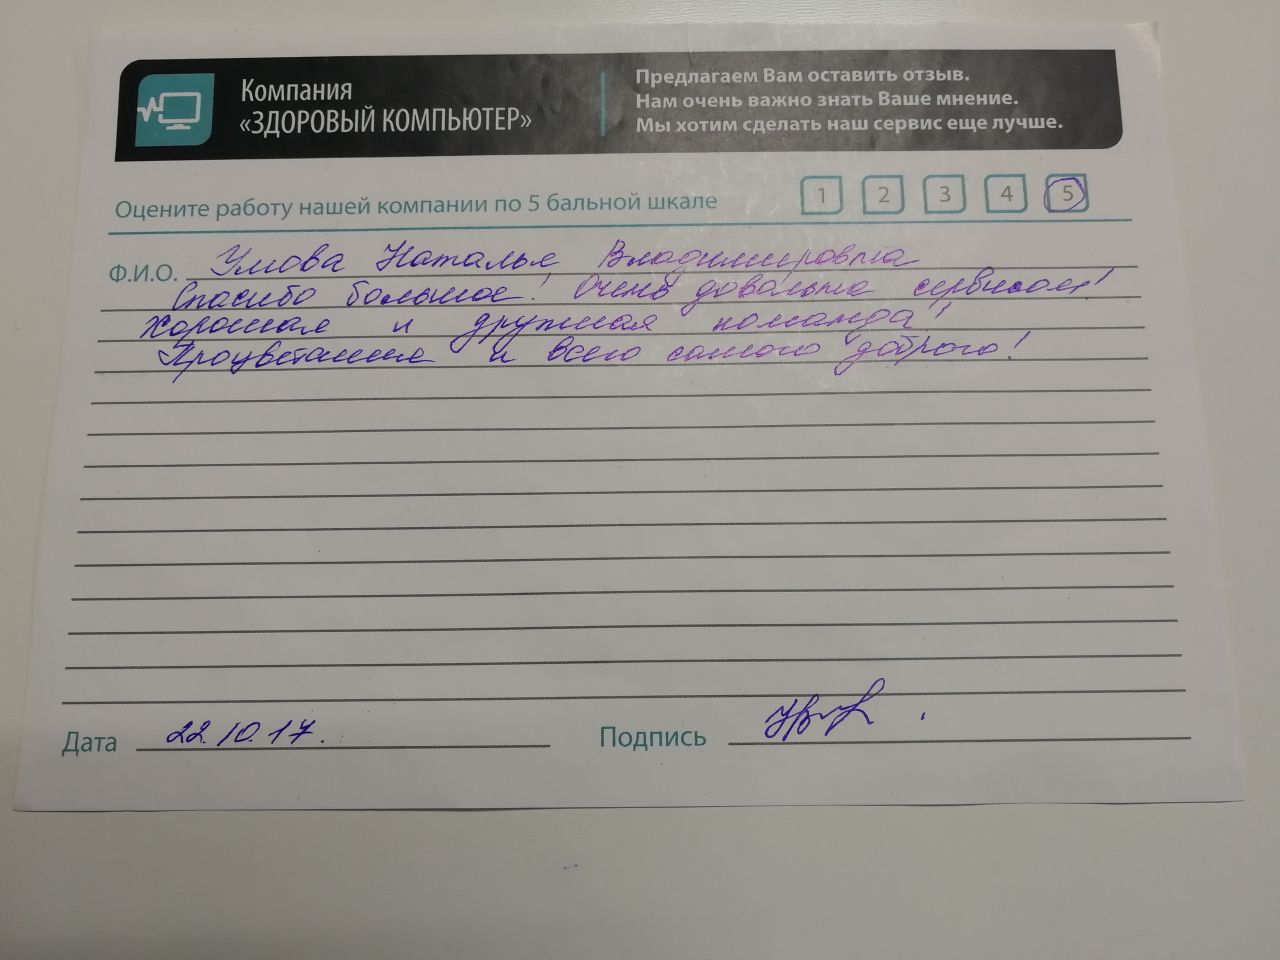 Компания
«ЗДОРОВЫЙ КОМПЬЮТЕР»
Предлагаем Вам оставить отзыв.
Нам очень важно знать Ваше мнение.
Мы хотим сделать наш сервис еще лучше.
Оцените работу нашей компании по 5 бальной шкале 1 2 3 4 5
Ф.И.О. Умова Наталья Владимировна
Спасибо большое! Очень довольна сервисом!
Хорошая и дружная команда!
Процветания и всего самого доброго!
Дата 22.10.17. Подпись